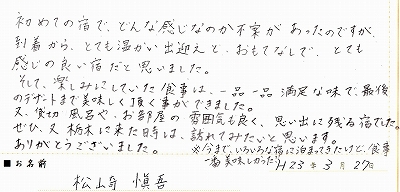 初めての宿で、どんな感じなのか不安があったのですが、
到着から、とても温かい出迎えと、おもてなしで、とても
感じの良い宿だと思いました。
そして、楽しみにしていた食事は、一品一品満足な味で、最後
のデザートまで美味しく頂く事ができました。
又、貸切風呂や、お部屋の雰囲気も良く、思い出に残る宿でした。
ぜひ、又栃木に来た時は、訪れてみたいと思います。
ありがとうございました。
※今まで、いろいろな宿に泊まってきたけど、食事
一番美味しかった!
H23年3月27日
■お名前
松崎 慎吾